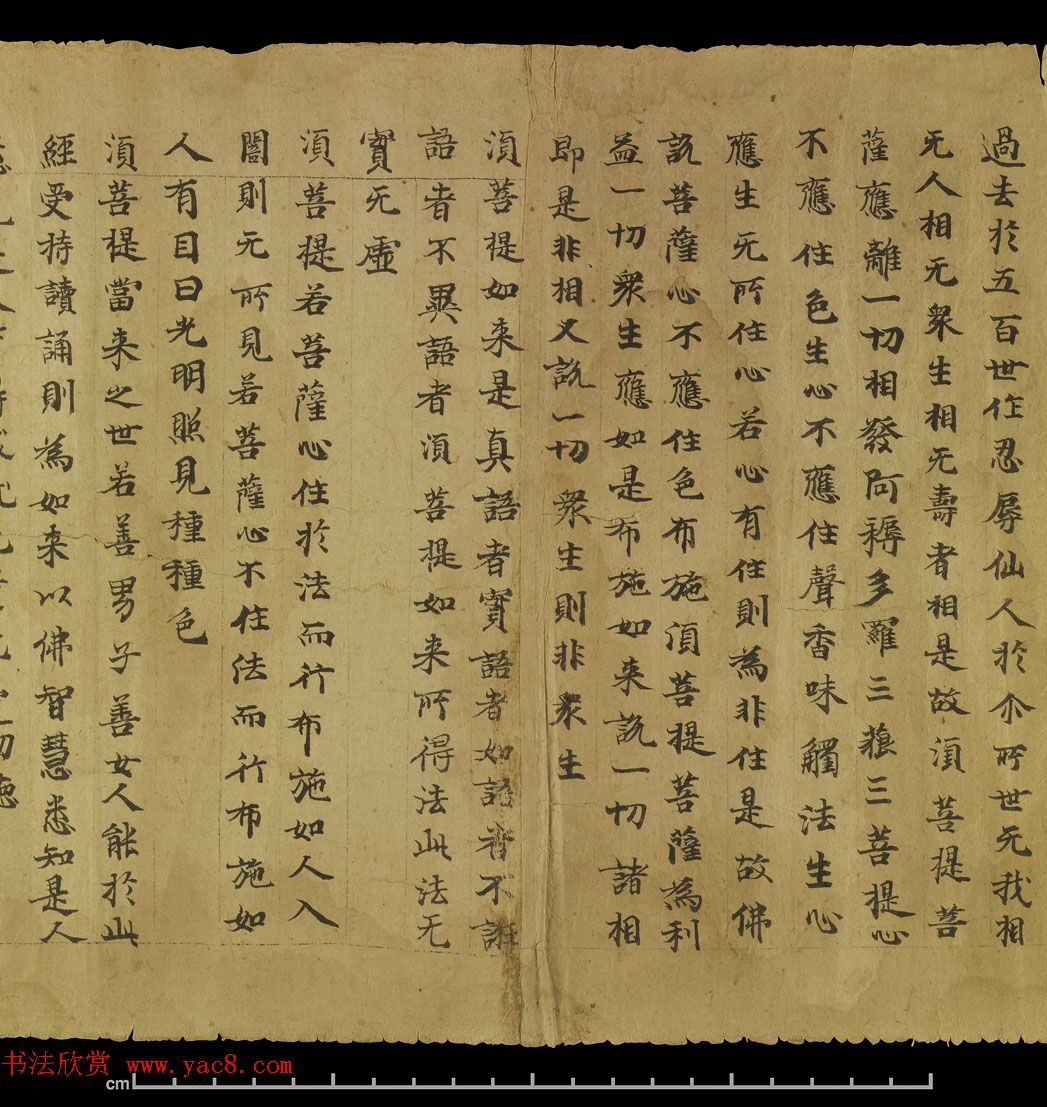 過去於五百世作忍辱仙人於尒所世无我相
无人相无衆生相无壽者相是故湏菩提菩
薩應離一切相發阿耨多羅三藐三菩提心
不應住色生心不應住聲香味觸法生心
應生无所住心若心有住則為非住是故佛
說菩薩心不應住色布施湏菩提菩薩為利
益一切衆生應如是布施如来說一切諸相
即是非相又說一切衆生則非衆生
湏菩提如来是真語者實語者如語者不誑
語者不異語者湏菩提如来所得法此法无
實无虛
湏菩提若菩薩心住於法而行布施如人入
闇則无所見若菩薩心不住法而行布施如
人有目日光明照見種種色
湏菩提當来之世若善男子善女人能於此
經受持讀誦則為如来以佛智慧悉知是人
书法欣赏 www.yac8.com
cm